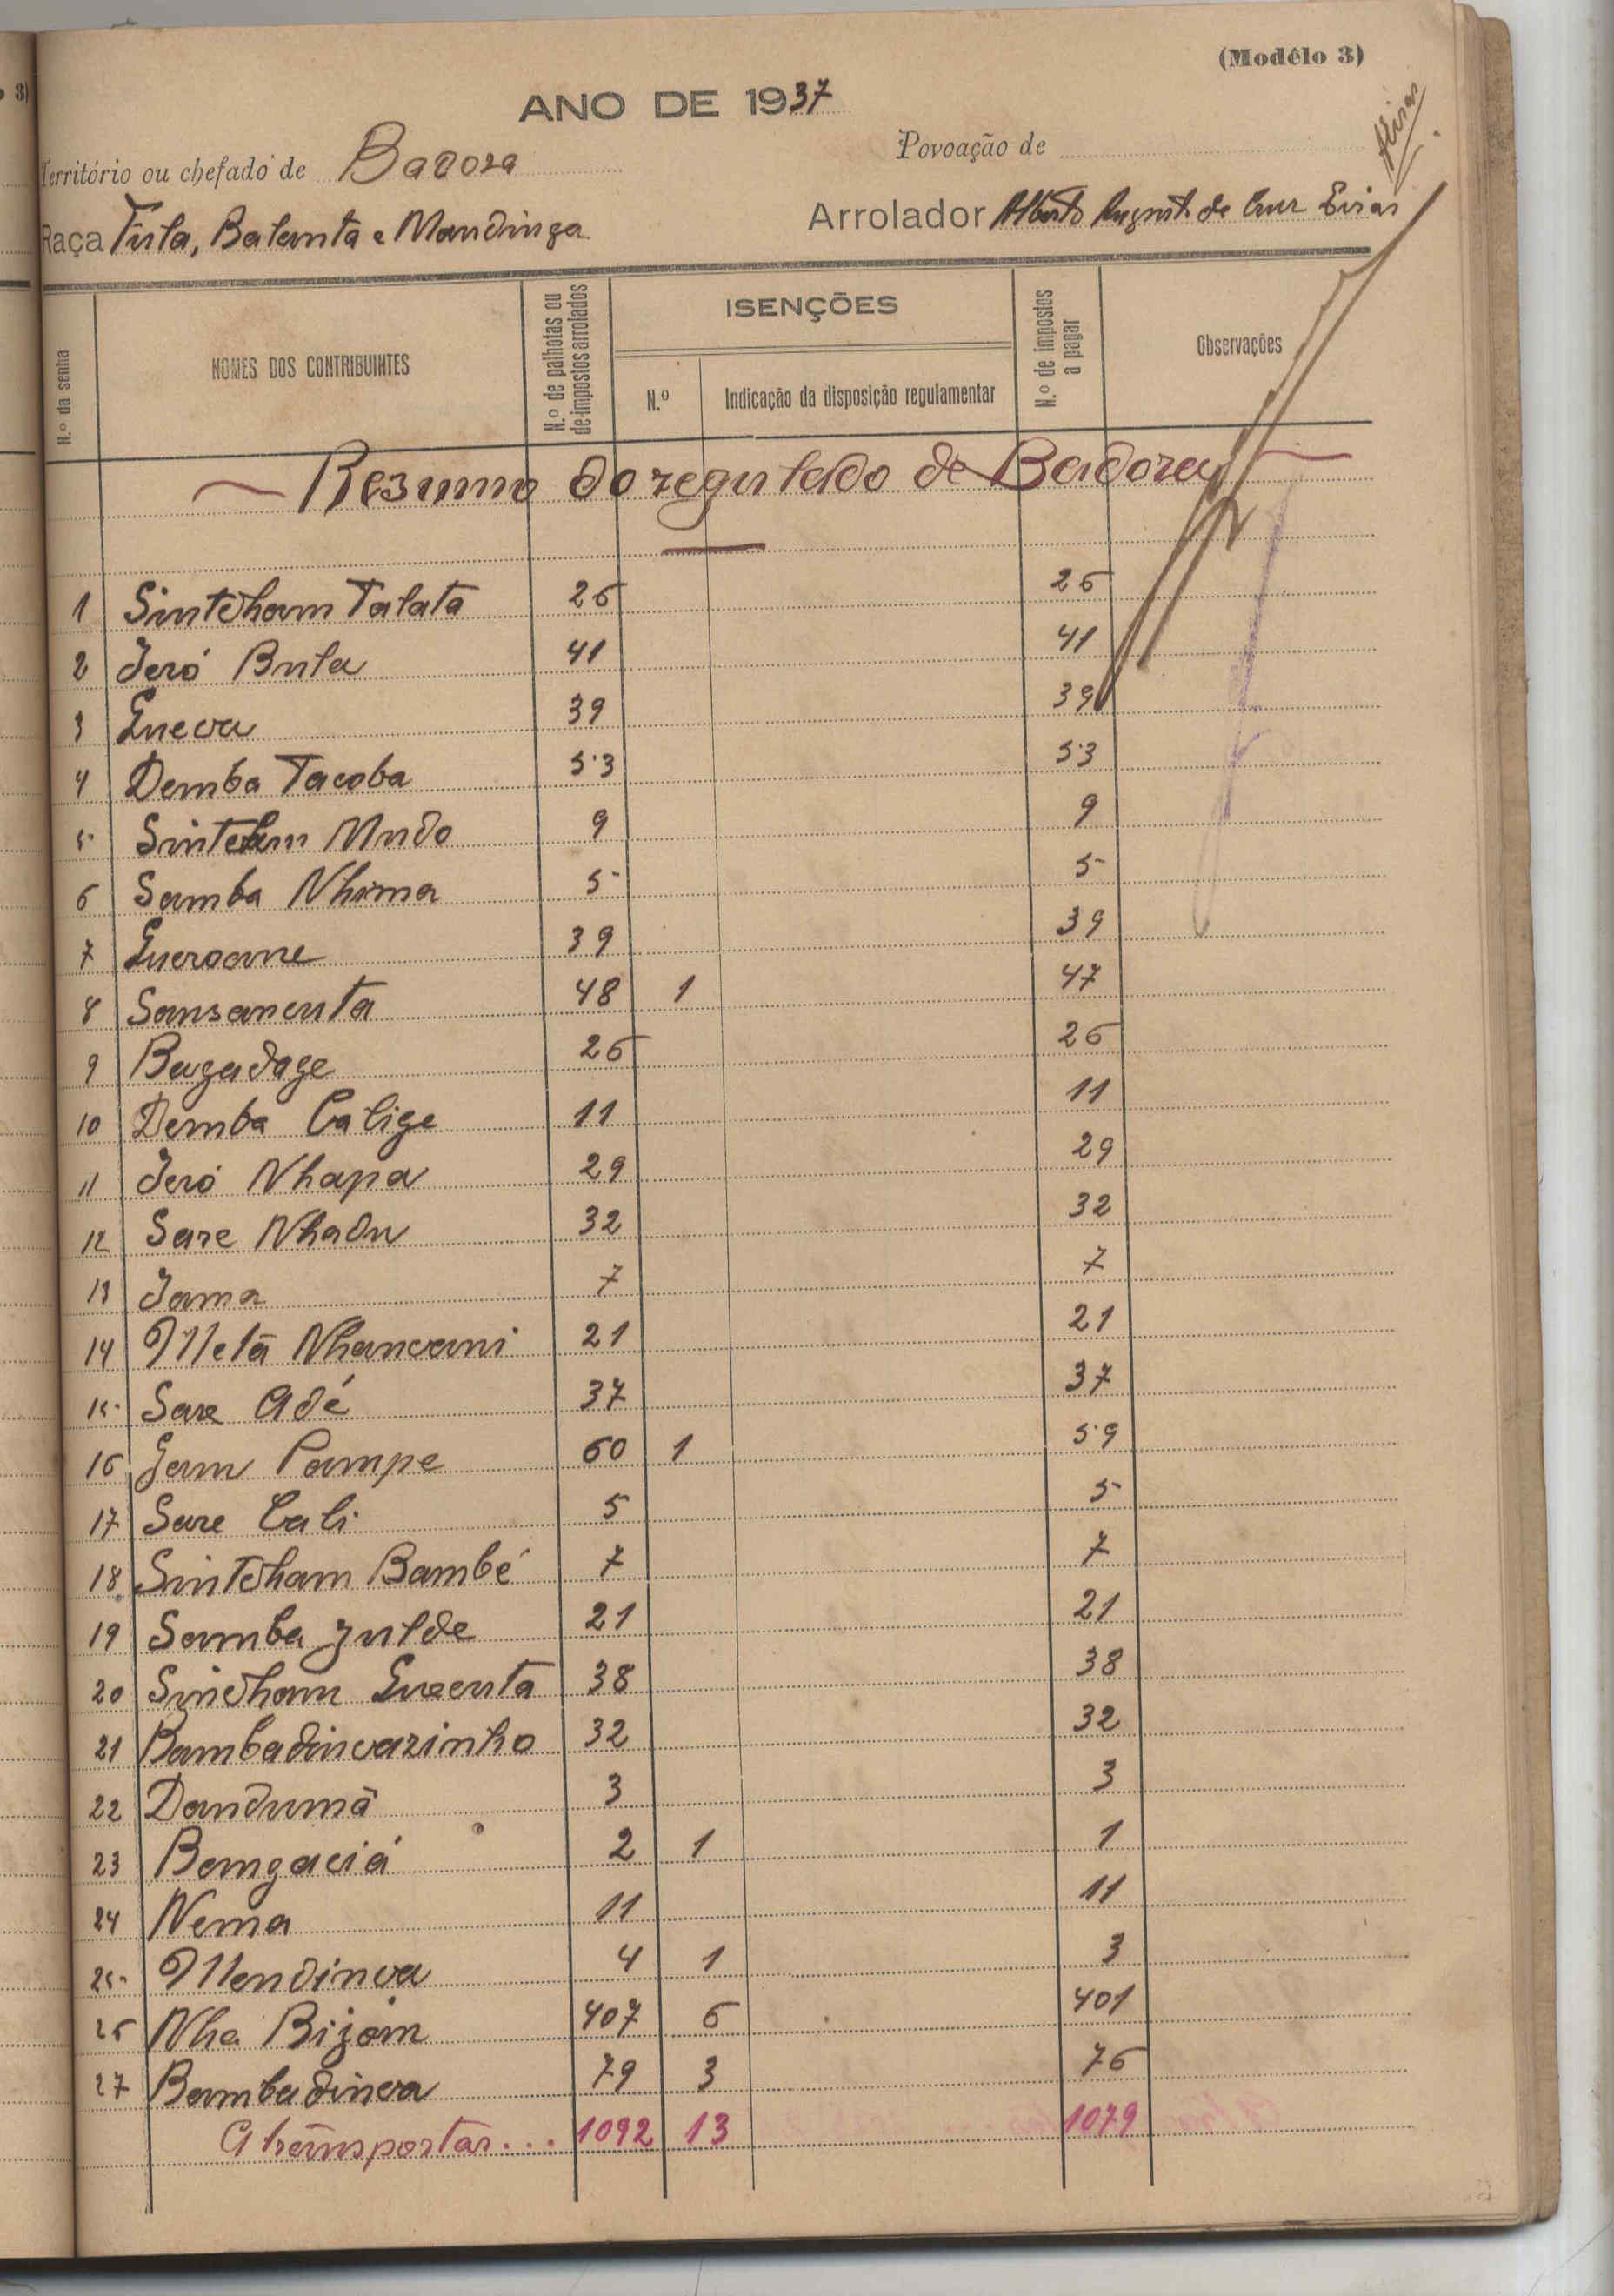 (Modêlo 3)
ANO DE 1937
Território ou chefado de Badora
Povoação de
Raça Fula, Balanta e Mandinga
Arrolador Alberto August. de Eiras
N.º da senha
NOMES DOS CONTRIBUINTES
N.º de palhotas ou de impostos arrolados
ISENÇÕES
N.º
Indicação da disposição regulamentar
N.º de impostos a pagar
Observações
Resumo do regulado de Badora
1 Sintcham Talata 26 26
2 Jeró Bula 41 41
3 Gueca 39 39
4 Demba Tacoba 53 53
5 Sintcham Mudo 9 9
6 Samba Nhima 5 5
7 Gueroane 39 39
8 Sansancuta 48 1 47
9 Bagadage 26 26
10 Demba Calige 11 11
11 Jeró Nhapa 29 29
12 Sare Nhadu 32 32
13 Jama 7 7
14 Metã Nhancani 21 21
15 Sare Adé 37 37
16 Gam Pampe 60 1 59
17 Sare Cali 5 5
18 Sintcham Bambé 7 7
19 Samba Julde 21 21
20 Sincham Guecuta 38 38
21 Bambadincazinho 32 32
22 Dandumã 3 3
23 Bamgaciá 2 1 1
24 Nema 11 11
25 Mendinca 4 1 3
26 Nha Bijom 407 6 401
27 Bambadinca 79 3 76
A transportar... 1092 13 1079